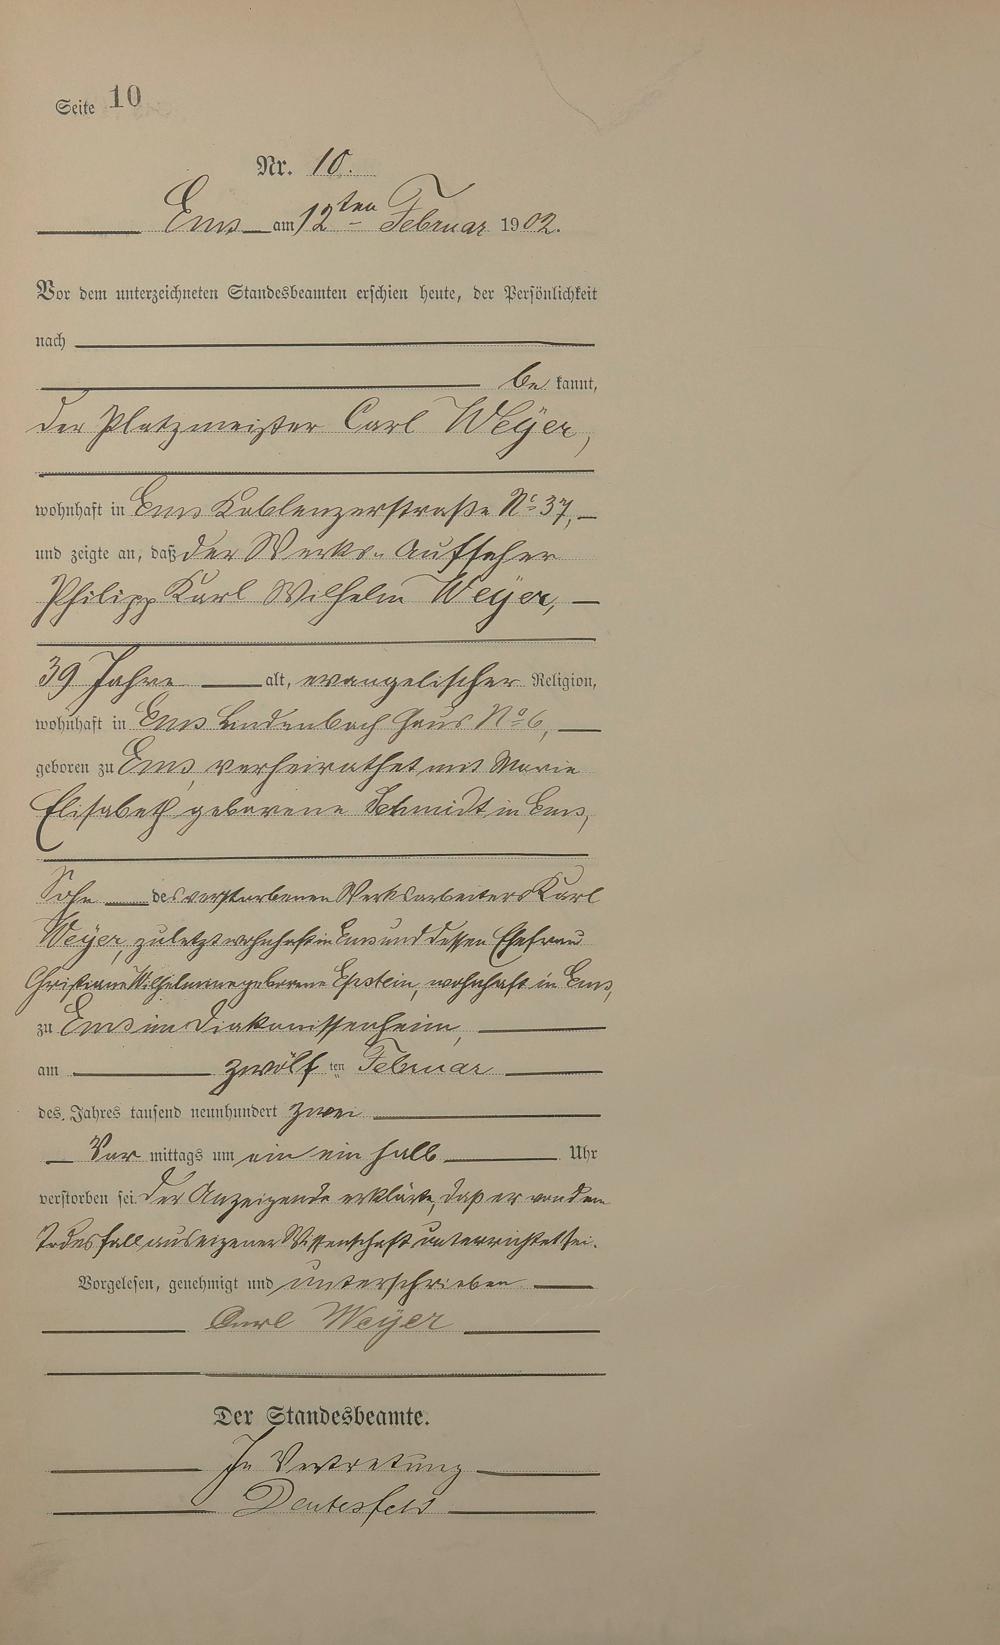 Seite 10
Nr. 10.
Ems am 12ten Februar 1902.
Vor dem unterzeichneten Standesbeamten erschien heute, der Persönlichkeit
nach
be kannt,
der Platzmeister Carl Weÿer,
wohnhaft in Ems Koblenzerstraße No 37,
und zeigte an, daß der Werks-Aufseher
Philipp Karl Wilhelm Weÿer,
39 Jahre alt, evangelischer Religion,
wohnhaft in Ems Lindenbach Haus No 6,
geboren zu Ems, verheirathet mit Marie
Elisabeth geborene Schmidt in Ems,
Sohn des verstorbenen Werksarbeiters Karl
Weÿer, zuletzt wohnhaft in Ems und dessen Ehefrau
Christiane Wilhelmine geborene Epstein, wohnhaft in Ems,
zu Ems im Diakonissenheim,
am zwölf ten Februar
des Jahres tausend neunhundert zwei
Vor mittags um ein ein halb Uhr
verstorben sei. Der Anzeigende erklärte, daß er von dem
Todesfall aus eigener Wissenschaft unterrichtet sei.
Vorgelesen, genehmigt und unterschrieben
Carl Weÿer
Der Standesbeamte.
In Vertretung